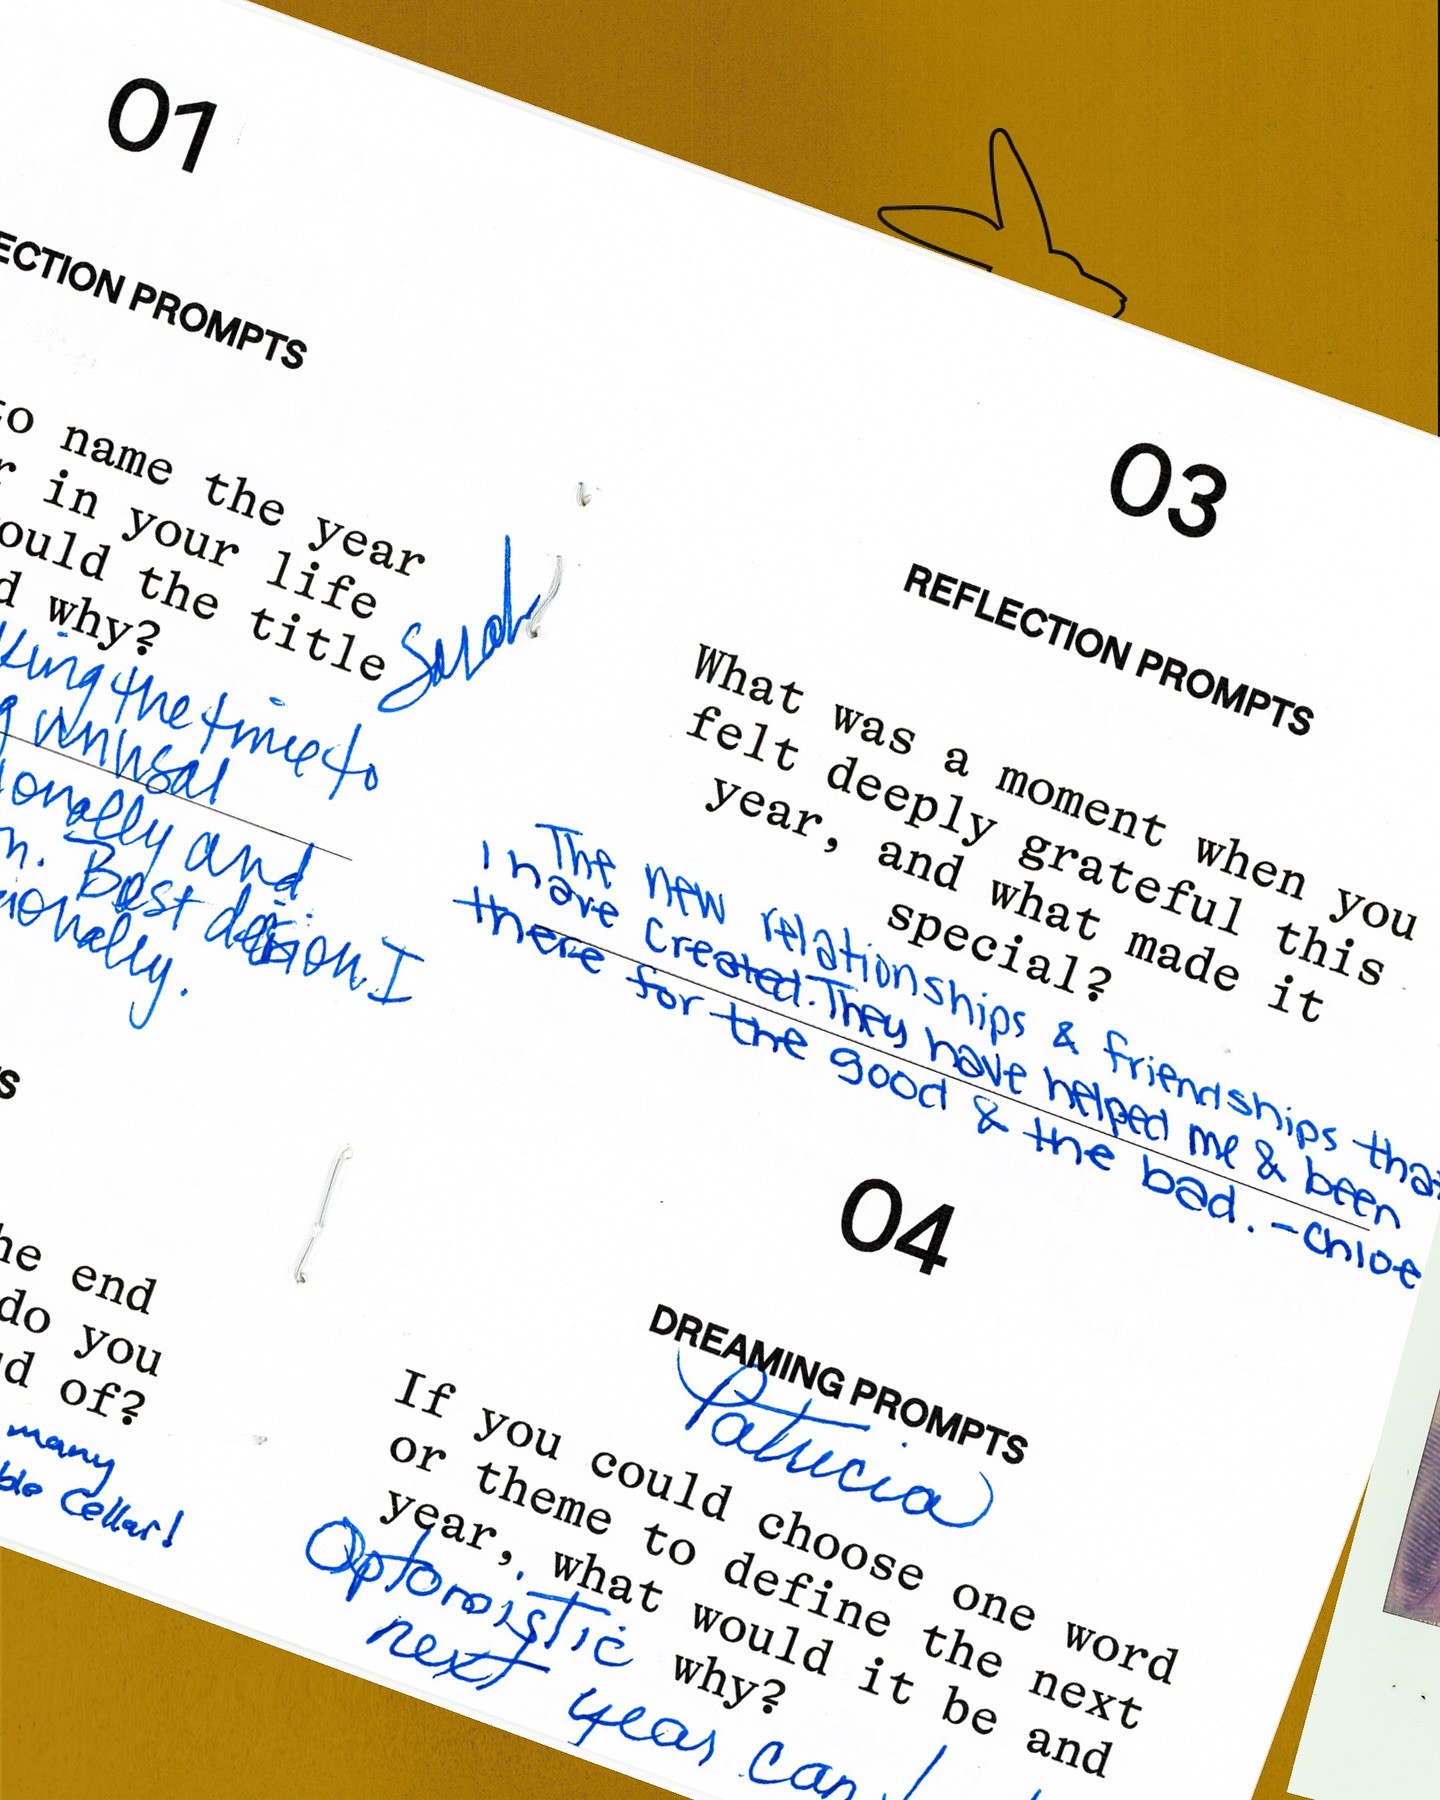 01
ECTION PROMPTS
to name the year
r in your life
ould the title
d why?
Sarah
king the time to
g unusal
ionally and
n. Best desion I
ionally.
S
he end
do you
d of?
many
ble Cellar!
03
REFLECTION PROMPTS
What was a moment when you
felt deeply grateful this
year, and what made it
special?
The new relationships & friendships that
I have created. They have helped me & been
there for the good & the bad. - Chloe
04
DREAMING PROMPTS
Patricia
If you could choose one word
or theme to define the next
year, what would it be and
why?
Optomistic
next year can